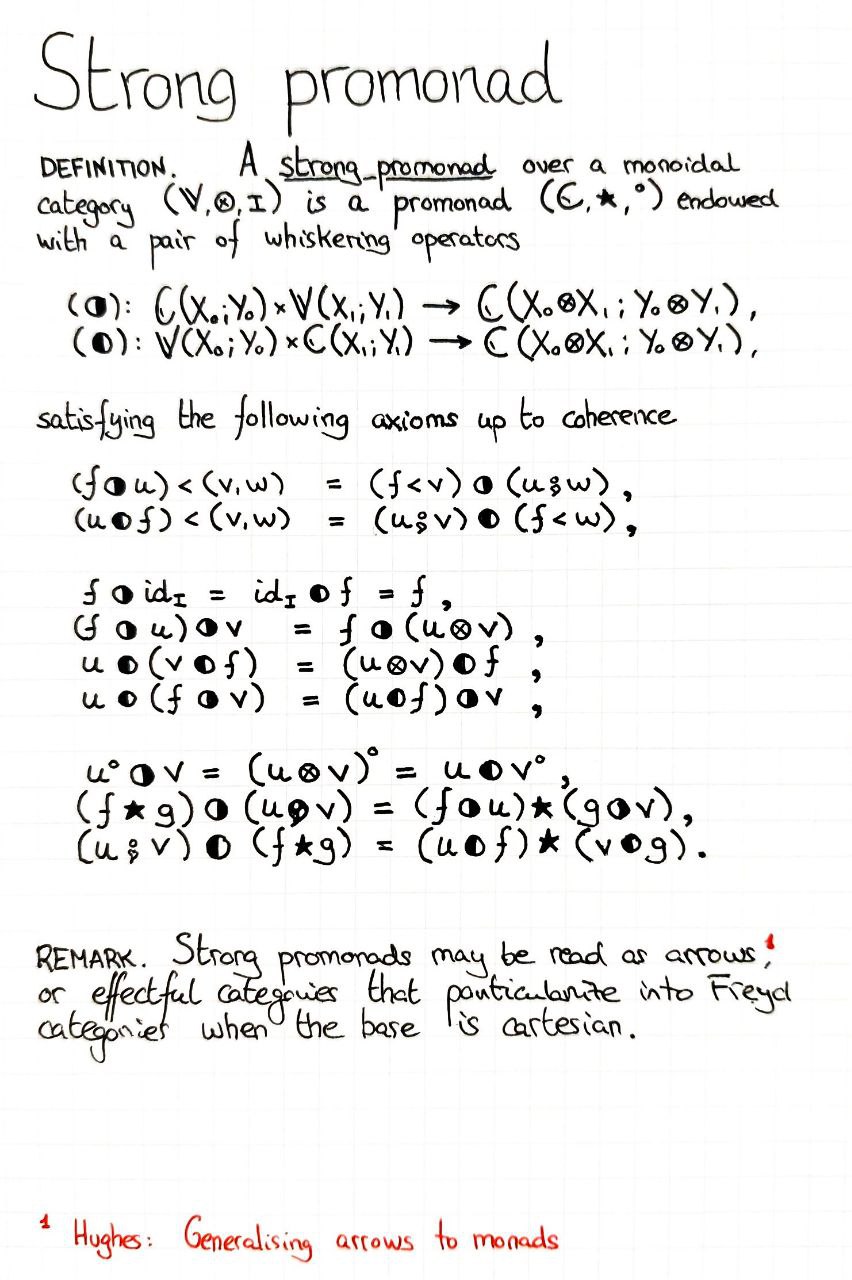 Strong promonad
DEFINITION. A strong promonad over a monoidal
category (𝕍,⊗,I) is a promonad (ℂ,★,°) endowed
with a pair of whiskering operators
(◑): ℂ(X₀;Y₀)×𝕍(X₁;Y₁) → ℂ(X₀⊗X₁; Y₀⊗Y₁),
(◐): 𝕍(X₀;Y₀)×ℂ(X₁;Y₁) → ℂ(X₀⊗X₁; Y₀⊗Y₁),
satisfying the following axioms up to coherence
(f◑u) < (v,w) = (f<v) ◑ (u⨾w),
(u◐f) < (v,w) = (u⨾v) ◐ (f<w),
f ◑ id_I = id_I ◐ f = f,
(f ◑ u) ◑ v = f ◑ (u⊗v),
u ◐ (v ◐ f) = (u⊗v) ◐ f,
u ◐ (f ◑ v) = (u◐f) ◑ v,
u° ◑ v = (u⊗v)° = u ◐ v°,
(f★g) ◑ (u⨾v) = (f◑u)★(g◑v),
(u⨾v) ◐ (f★g) = (u◐f)★(v◐g).
REMARK. Strong promonads may be read as arrows,¹
or effectful categories that particularize into Freyd
categories when the base is cartesian.
¹ Hughes: Generalising arrows to monads